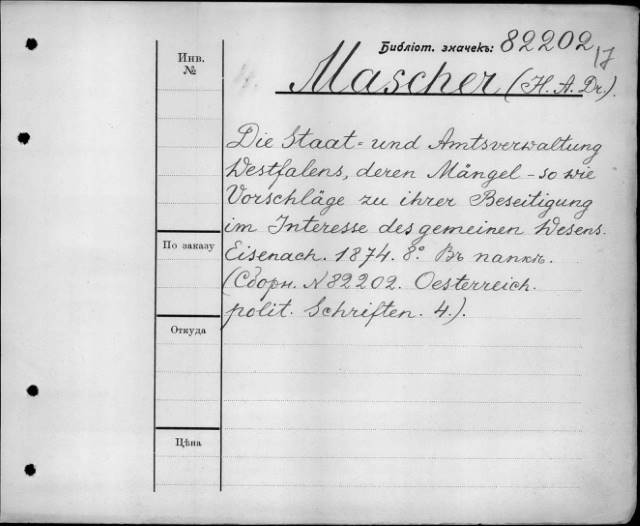 Библіот. значекъ: 82202
17
Инв.
№
Mascher (H. A. Dr.).
Die Staat- und Amtsverwaltung
Westfalens, deren Mängel - so wie
Vorschläge zu ihrer Beseitigung
im Interesse des gemeinen Wesens.
Eisenach. 1874. 8.° Въ папкѣ.
(Сборн. N 82202. Oesterreich.
polit. Schriften. 4.).
По заказу
Откуда
Цѣна